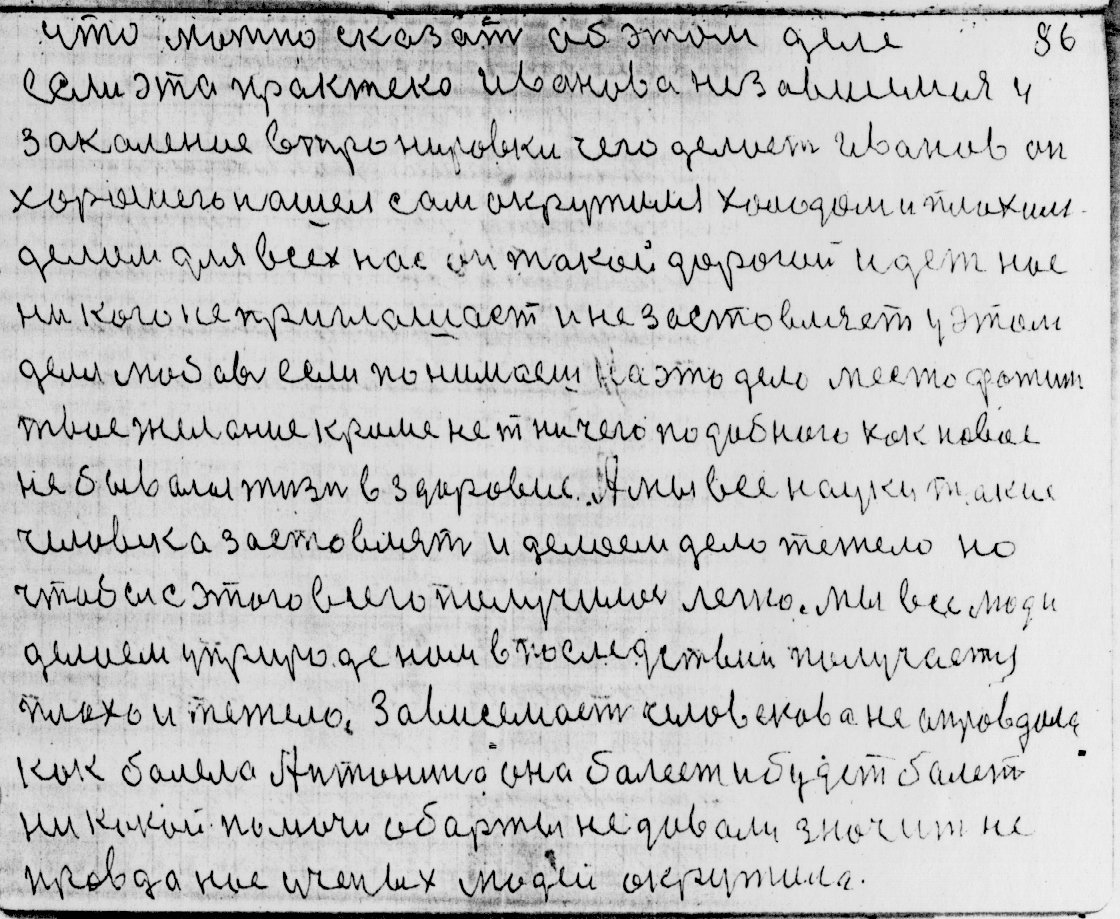 что можно сказат об этом деле 86
если эта практеко Иванова независимия и
закаление в тронировки чего делоет Иванов он
хорошего нашел сам окружился холодом и плохим
делом для всех нас он такой дорогой идет нас
ни кого не приглашает и не застовляет у этом
деля любовь если понимаеш на это дело место
твое желание кроме нет ничего подобного как новое
не бывалая жизн в здоровие. А мы все науки такие
человека застовлят и делоем дело тежело но
чтобы с этого всего получилос легко. мы все люди
делоем у природе нам в последствии получается
плохо и тежело. Зависемост человекова не оправдола
как болела Антонино она болеет и будет болет
ни какой помочи обарты не давали значит не
правда нас ученых людей окружила.